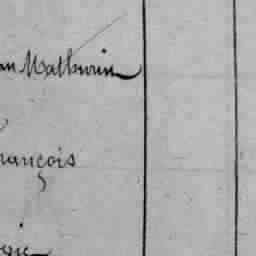 an Mathurin
rançois